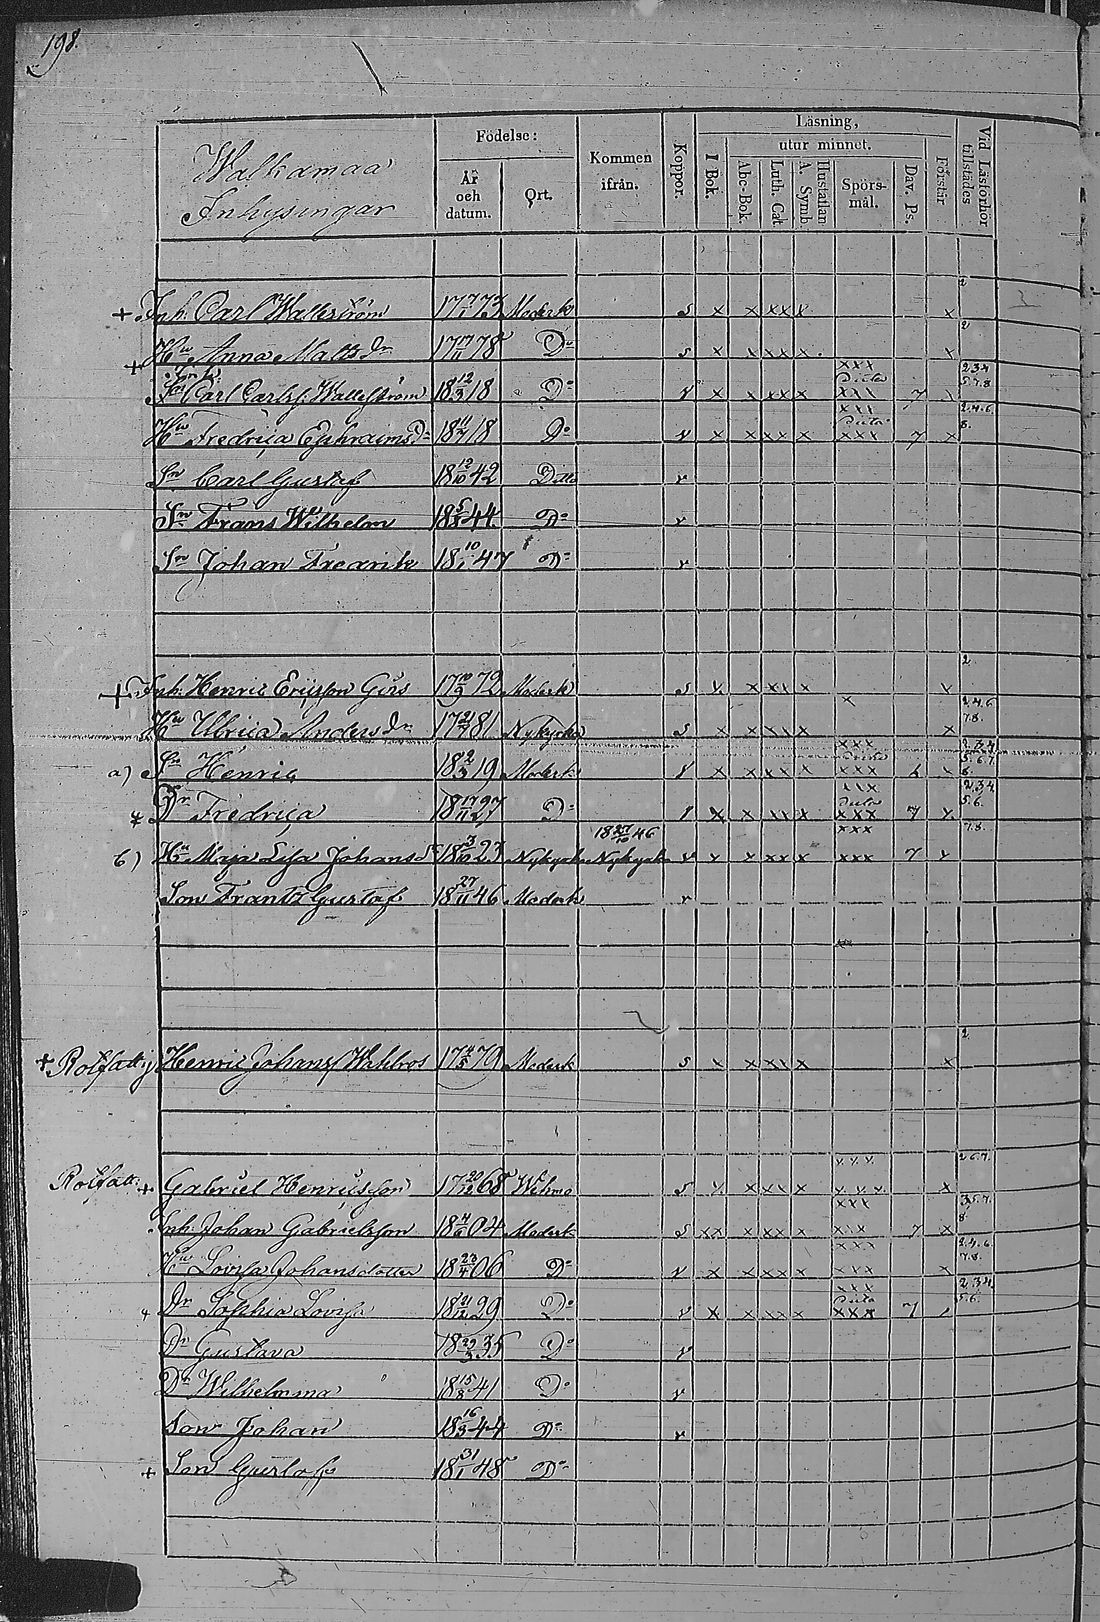 198.
Walkamaa
Inhysingar
Födelse:
År och datum.
Ort.
Kommen ifrån.
Koppor.
Läsning,
I Bok.
utur minnet.
Abc-Bok.
Luth. Cat.
A. Symb.
Hustaflan
Spörs-mål.
Dav. Ps.
Förstår
Vid Läsförhör tillstädes
+ Inh. Carl Wallström 17 7/1 73 Moderk s x x x x x x 2
+ Hu Anna Matts Dr 17 17/11 78 Do s x x x x x x 2
Sn Carl Carlss. Wallström 18 12/3 18 Do v x x x x x xxx 7 x 2.3.4 5.7.8
Hu Fredrica Ephraims Dr 18 11/7 18 Do v x x x x x xxx 7 x 2.4.6. 8.
Sn Carl Gustaf 18 12/10 42 Ditto v
Sn Frans Wilhelm 18 5/3 44 Do v
Sn Johan Fredrik 18 10/1 47 Do v
+ Inh. Henric Ericsson Girs 17 10/9 72 Moderk s x x x x x x 2
Hu Ulrica Anders Dr 17 21/7 81 Nykyrka s x x x x x x x 2.4.6 7.8.
a) Sn Henric 18 12/3 19 Moderk v x x x x x xxx x 2.3.4 5.6.7 8.
Dr Fredrica 18 17/11 27 Do v x x x x x xxx 7 x 2.3.4 5.6.
b) Hu Maja Lisa Johans Dr 18 3/10 23 Nykyrk 18 27/10 46 Nykyrk v x x x x x xxx 7 x 7.8.
Son Frantz Gustaf 18 27/11 46 Moderk v
+ Rotfattig Henric Johanss. Wahlros 17 4/5 70 Moderk s x x x x x x 2
Rotfatt. + Gabriel Henricsson 17 20/12 68 Wehmo s x x x x x x x x x 2.6.7.
Inh. Johan Gabrielsson 18 4/6 04 Moderk s xx x x x x xxx 7 x 3.5.7. 8
Hu Lovisa Johansdotter 18 23/4 06 Do v x x x x x xxx x 2.4.6. 7.8.
Dr Sophia Lovisa 18 21/12 29 Do v x x x x x xxx 7 2.3.4 5.6.
Dr Gustava 18 29/3 35 Do v
Dr Wilhelmina 18 15/8 41 Do v
Son Johan 18 16/3 44 Do v
+ Son Gustaf 18 31/1 48 Do